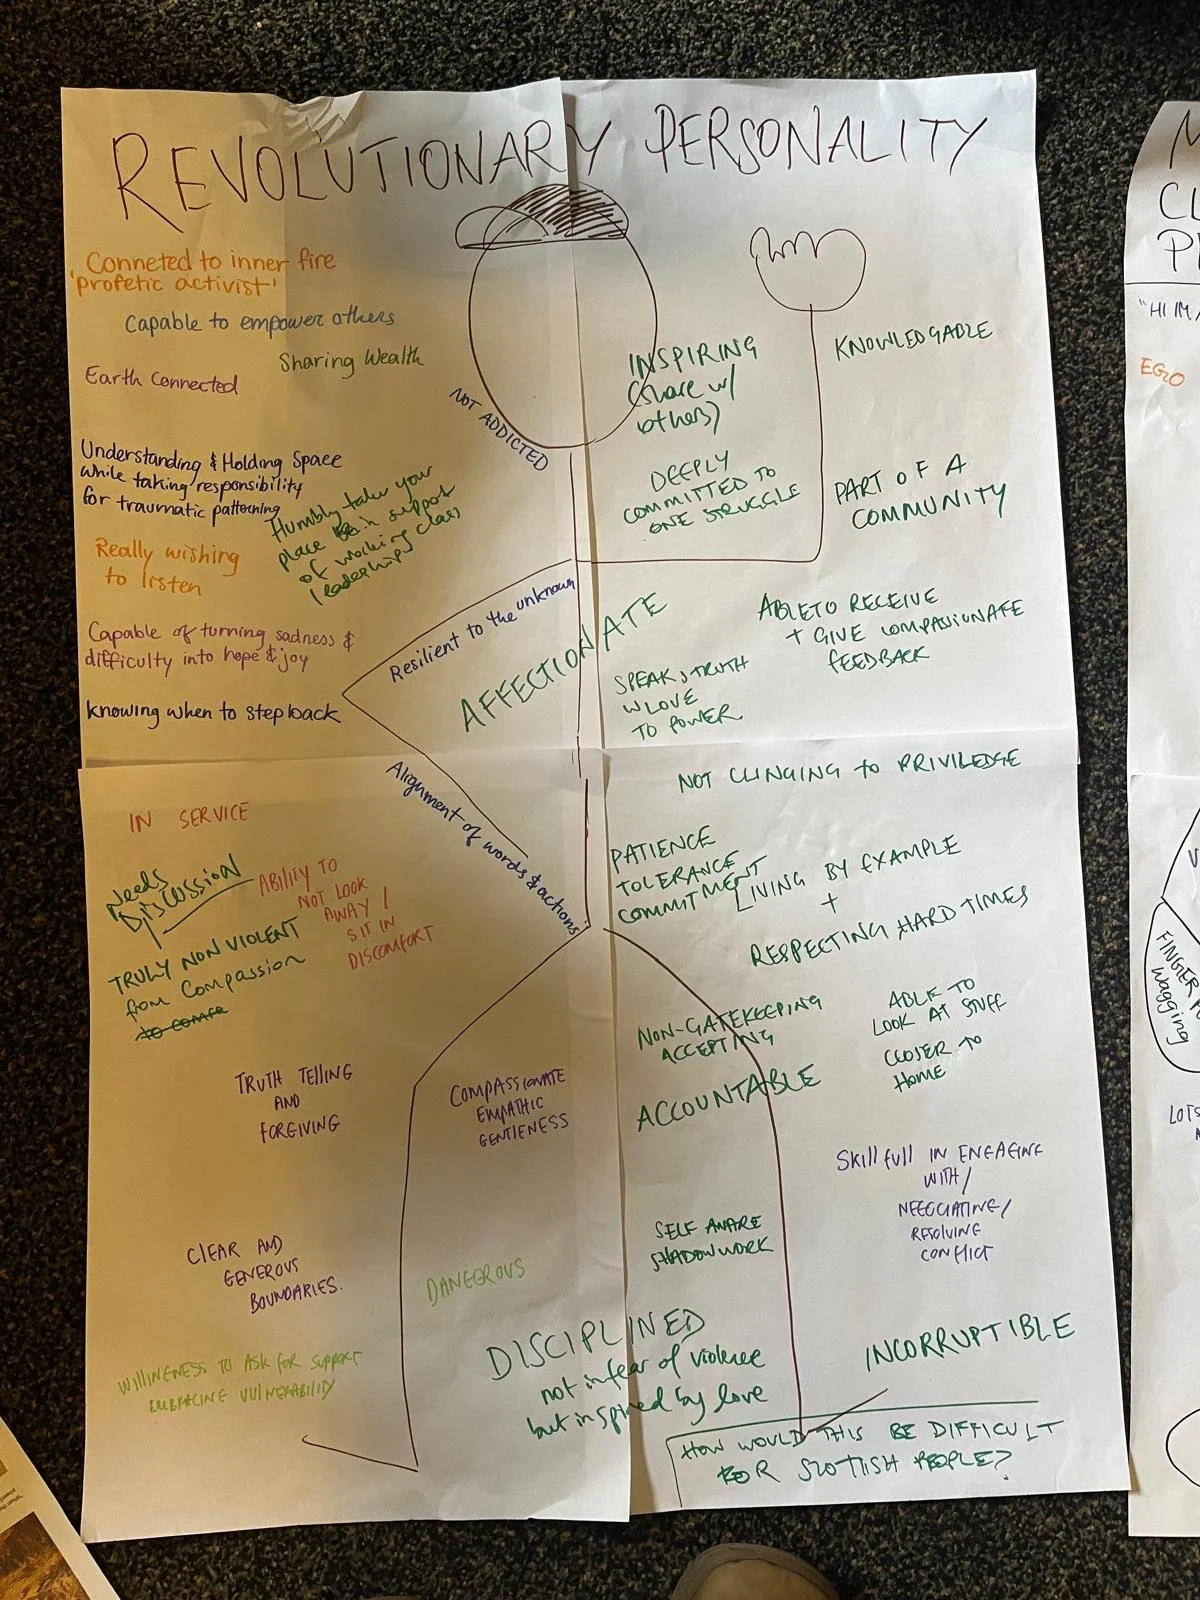 REVOLUTIONARY PERSONALITY
Conneted to inner fire
'profetic activist'
Capable to empower others
Sharing Wealth
Earth Connected
NOT ADDICTED
Understanding & Holding Space
while taking responsibility
for traumatic patterning
Humbly take your
place in support
of working class
leadership
Really wishing
to listen
Capable of turning sadness &
difficulty into hope & joy
knowing when to step back
INSPIRING
(share w/
others)
KNOWLEDGABLE
DEEPLY
COMMITTED TO
ONE STRUGGLE
PART OF A
COMMUNITY
Resilient to the unknown
AFFECTIONATE
ABLE TO RECEIVE
+ GIVE COMPASSIONATE
FEEDBACK
SPEAKS TRUTH
W LOVE
TO POWER
Alignment of words & actions
NOT CLINGING to PRIVILEDGE
IN SERVICE
Needs
DISCUSSION
ABILITY TO
NOT LOOK
AWAY /
SIT IN
DISCOMFORT
TRULY NON VIOLENT
from Compassion
PATIENCE
TOLERANCE
COMMITMENT
LIVING BY EXAMPLE
+
RESPECTING HARD TIMES
NON-GATEKEEPING
ACCEPTING
ABLE TO
LOOK AT STUFF
CLOSER TO
HOME
TRUTH TELLING
AND
FORGIVING
COMPASSIONATE
EMPATHIC
GENTLENESS
ACCOUNTABLE
Skillfull IN ENGAGING
WITH/
NEGOCIATING/
RESOLVING
CONFLICT
CLEAR AND
GENEROUS
BOUNDARIES.
DANGEROUS
SELF AWARE
SHADOWWORK
WILLINGNESS TO ASK FOR SUPPORT
EMBRACING VULNERABILITY
DISCIPLINED
not in fear of violence
but inspired by love
INCORRUPTIBLE
HOW WOULD THIS BE DIFFICULT
FOR SCOTTISH PEOPLE?
"HI IM
EGO
wagging